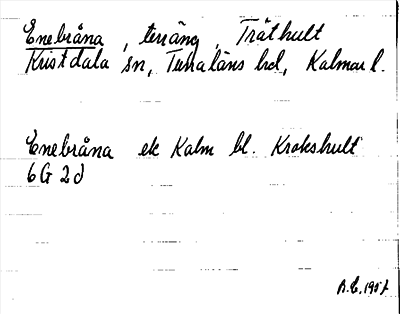 Enebråna, terräng, Tråthult
Kristdala sn, Tunaläns hd, Kalmar l.
Enebråna ek Kalm bl. Krokshult
6G 2d